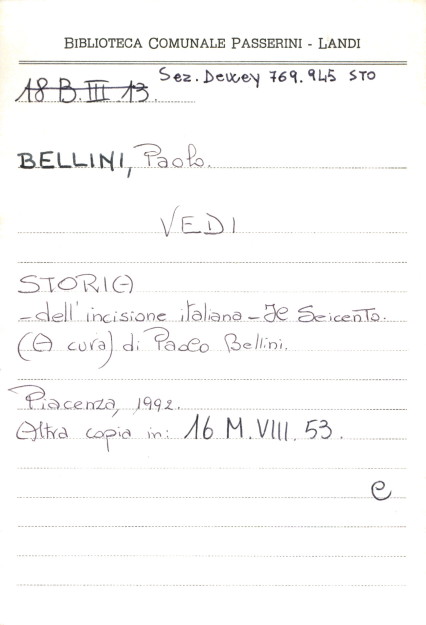 BIBLIOTECA COMUNALE PASSERINI - LANDI
Sez. Dewey 769.945 STO
18 B. III. 13.
BELLINI, Paolo.
VEDI
STORIA
- dell'incisione italiana - Il Seicento.
(A cura) di Paolo Bellini.
Piacenza, 1992.
Altra copia in: 16 M. VIII. 53.
e